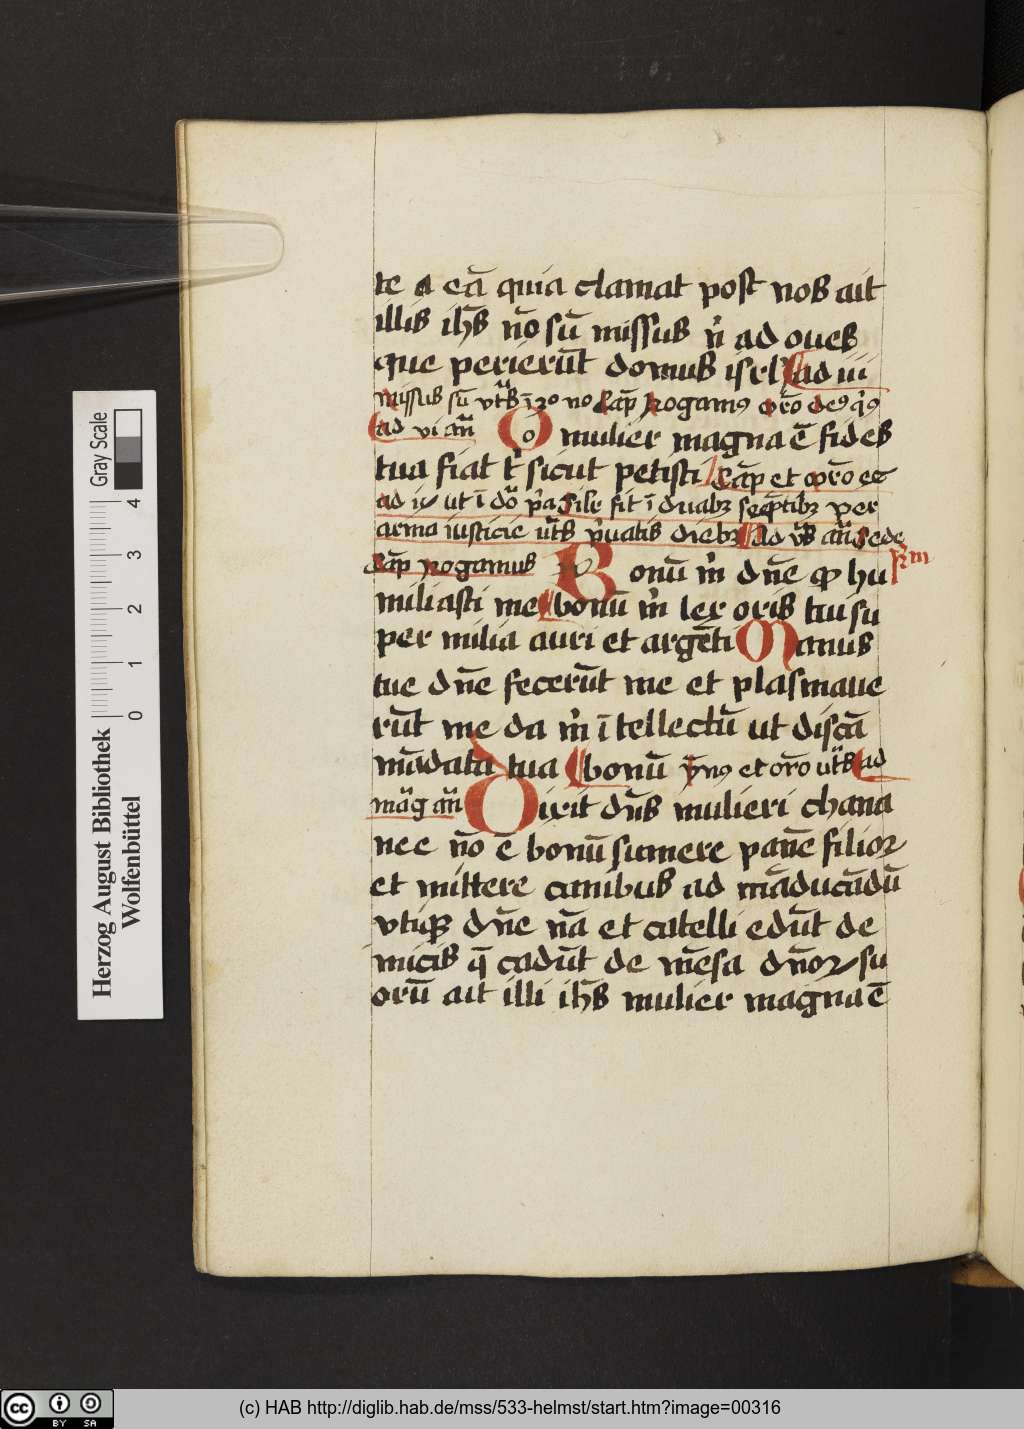 te a eā quia clamat post nos ait
illis ih̄s n̄o sū missus n̄ ad oues
que perierūt domus isrl̄ ad iii
missus sū vt̄s ī ro no Cap̄ Rogamꝰ or̄o deꝰ qͥ
ad vi an̄ O mulier magna ē fides
tua fiat tͥ sicut petisti Cap̄ et or̄o ec
ad ut ī do p̄a fit ī duabꝫ seq̄tibꝫ per
arma iusticie ut̄s p̄uatis diebꝫ Ad vs̄ an̄ Sede
Cap̄ Rogamus Bonū m̄ dn̄e ꝙ hu Rm
miliasti me bonū m̄ lex oris tui su
per milia auri et argēti Manus
tue dn̄e fecerūt me et plasmaue
rūt me da m̄ ītellectū ut discā
mādata tua bonū ẏmꝰ et or̄o ut̄s ad
māg an̄ Dixit dn̄s mulieri chana
nee n̄o ē bonū sumere panē filioꝝ
et mittere canibus ad māducādū
vtiqꝫ dn̄e nā et catelli edūt de
micis q̄ cadūt de mēsa dn̄oꝝ su
orū ait illi ih̄s mulier magna ē
Gray Scale
0 1 2 3 4
Herzog August Bibliothek
Wolfenbüttel
cc BY SA
(c) HAB http://diglib.hab.de/mss/533-helmst/start.htm?image=00316